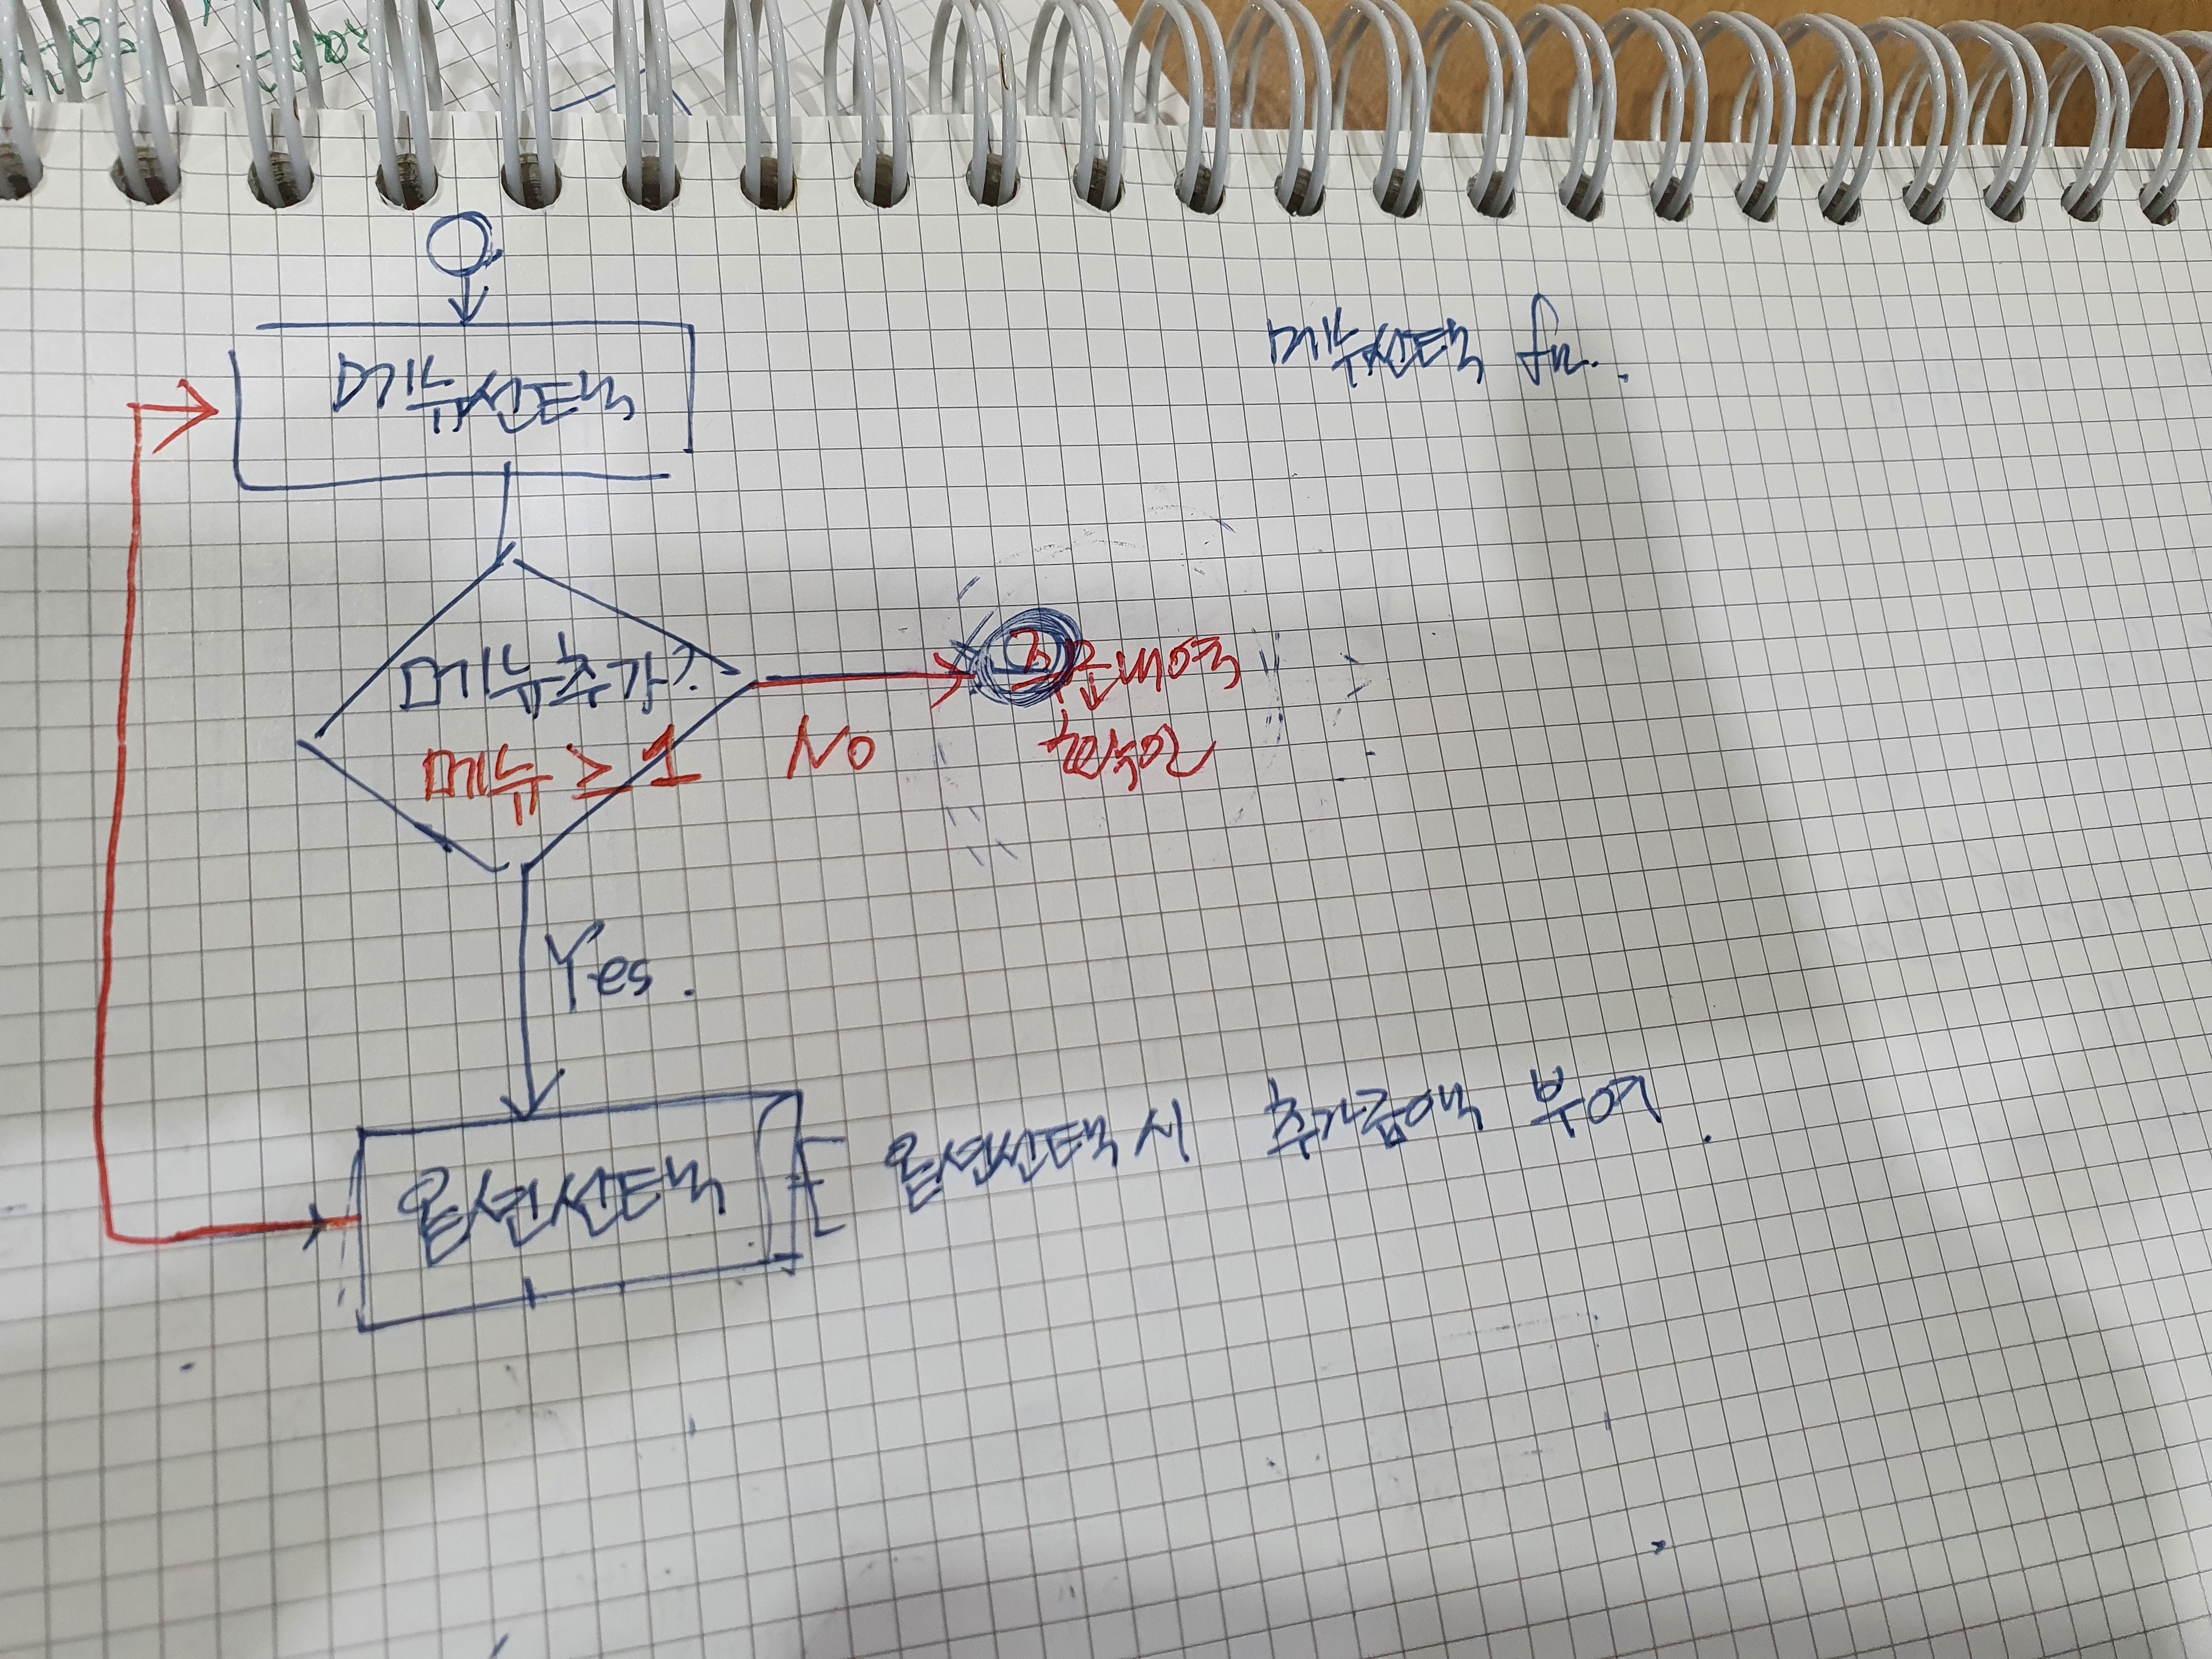 메뉴선택
메뉴선택 fn.
메뉴추가?
메뉴 ≥ 1
No
주문내역
확인
Yes.
옵션선택
옵션선택 시 추가금액 부여.